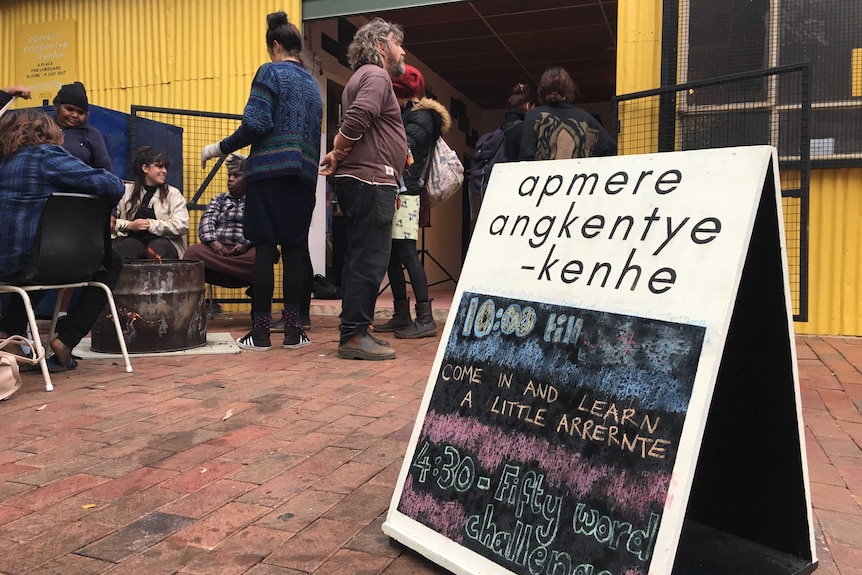 apmere
angkentye
-kenhe
A PLACE
FOR LANGUAGE
apmere
angkentye
-kenhe
10:00 till
COME IN AND LEARN
A LITTLE ARRERNTE
4:30 - Fifty word
challenge